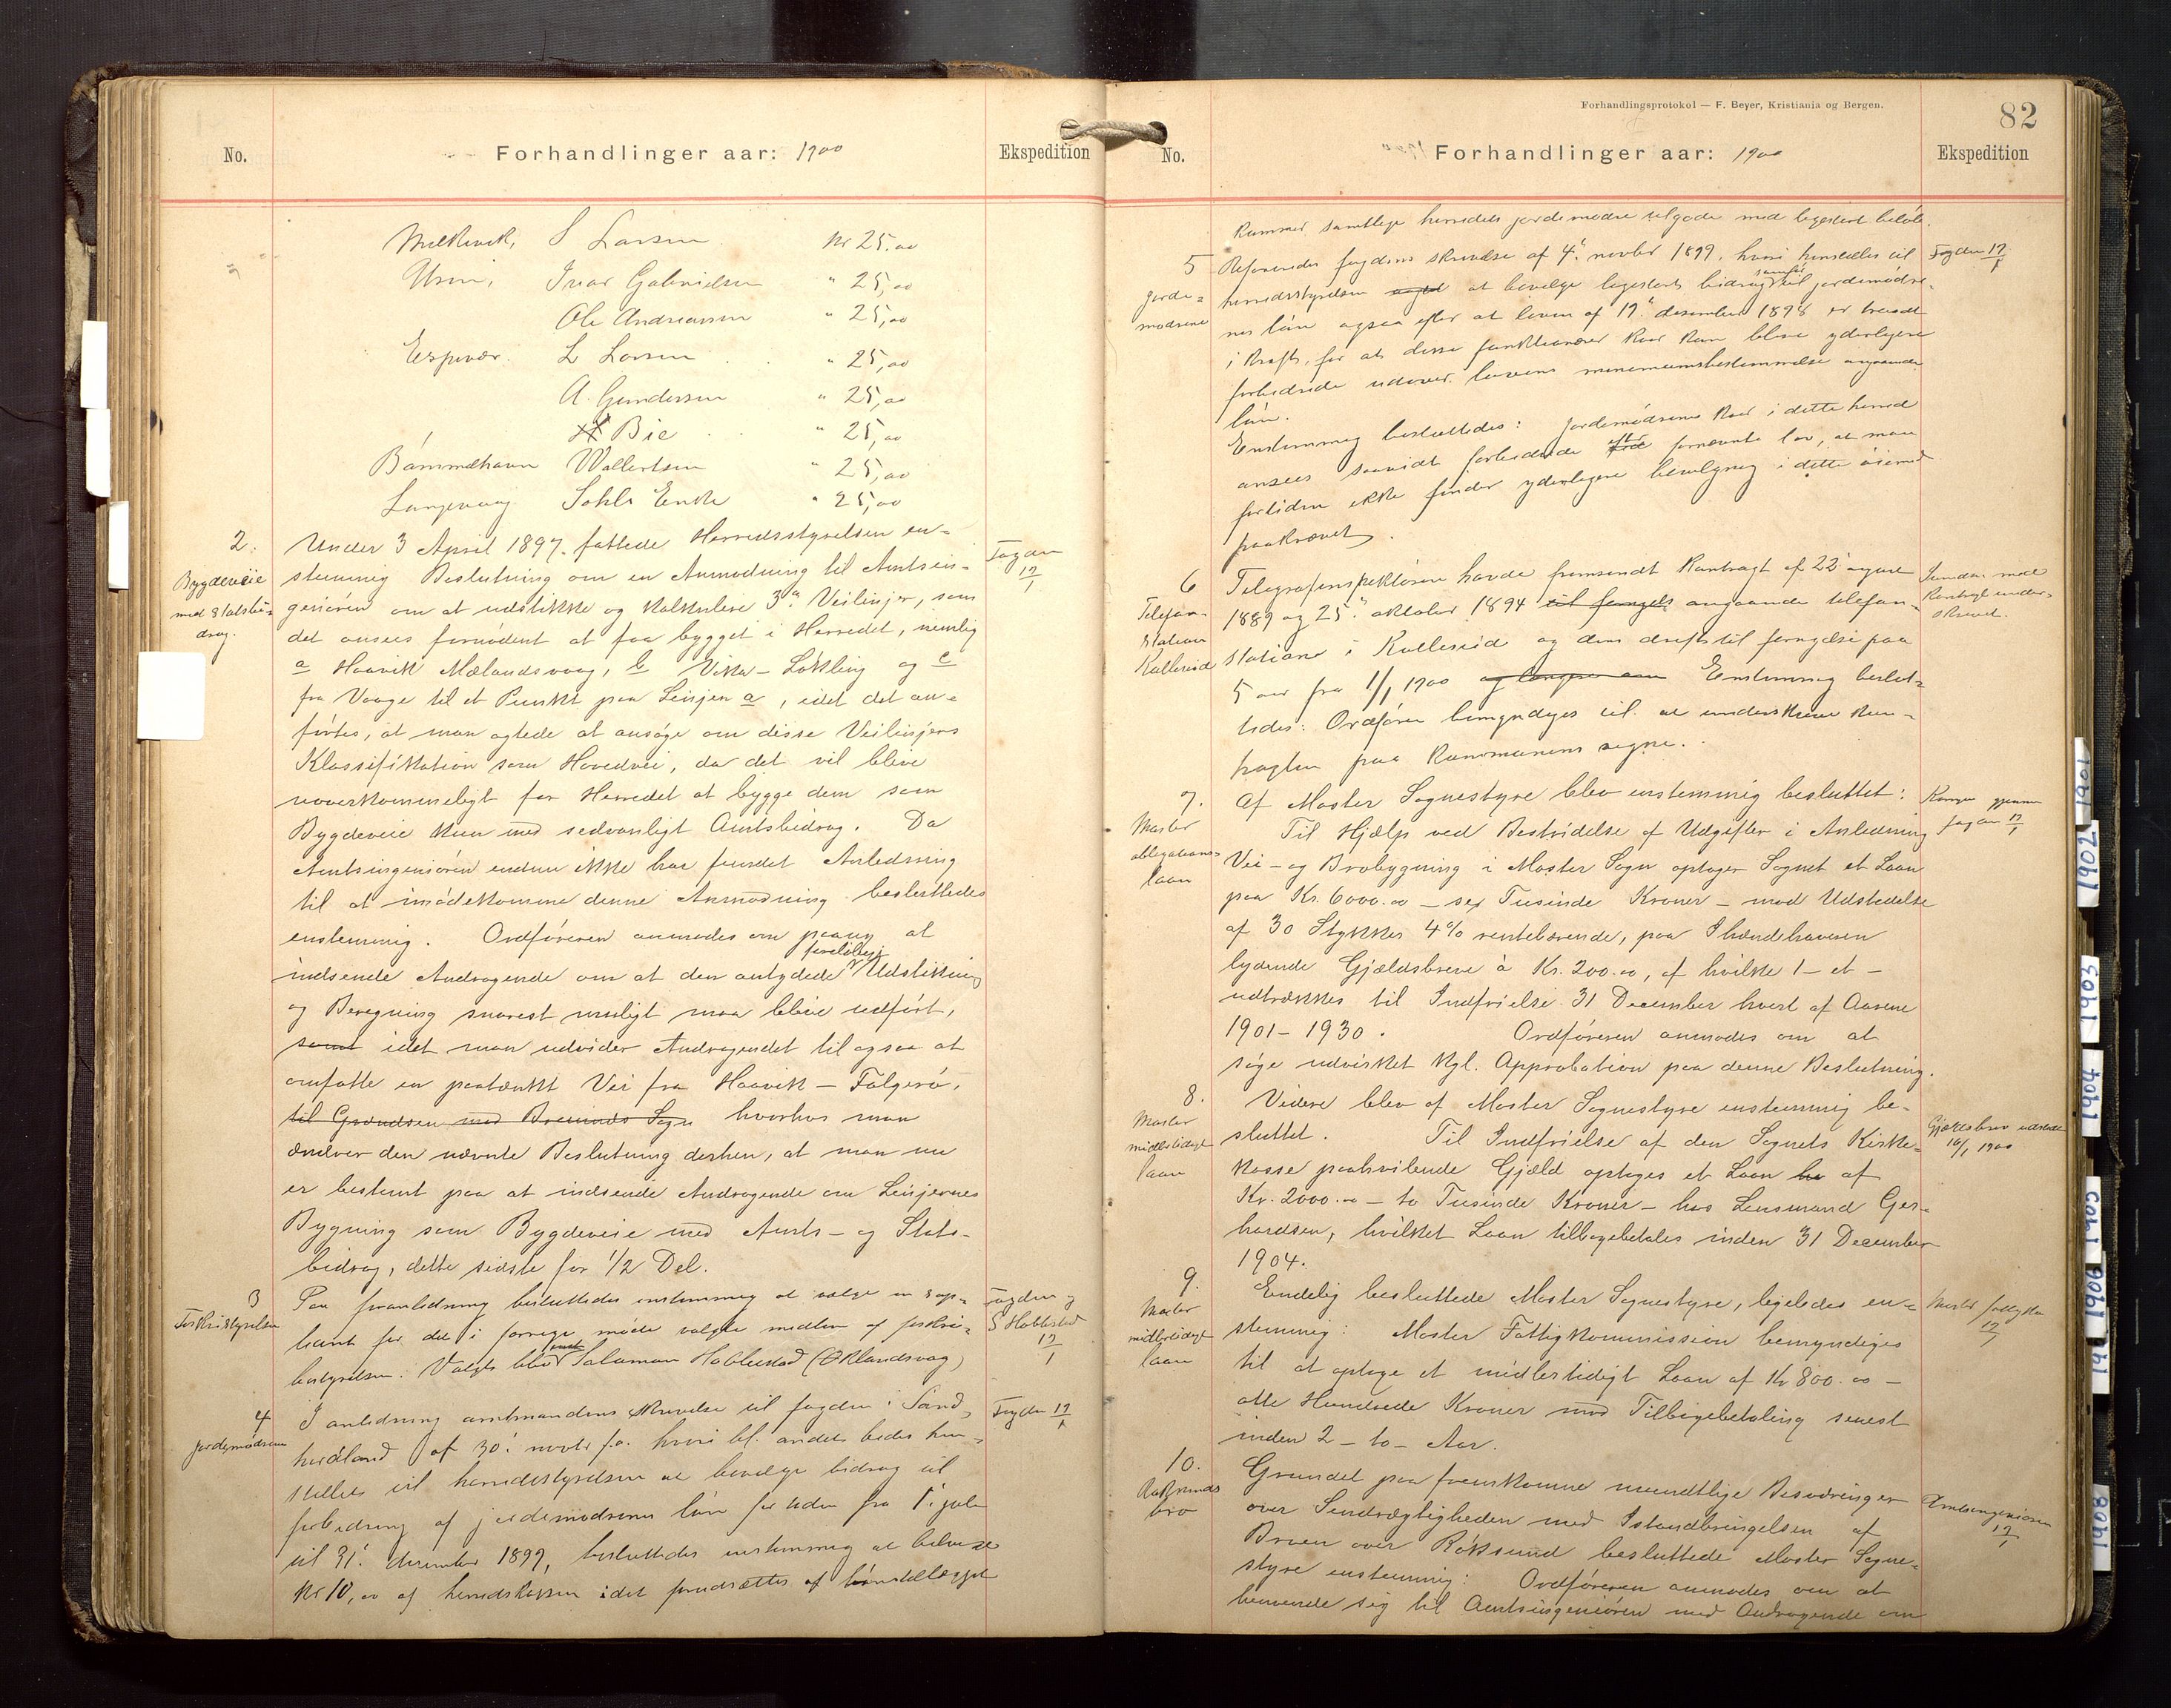 No.
Forhandlinger aar: 1900
Ekspedition
Melkevik, S Larsen Kr 25.00
Urni, Ivar Gabrielsen " 25,00
Ole Andreassen " 25,00
Espevær. L Larsen " 25,00
A. Gundersen " 25,00
H Bie " 25,00
Bømmelhavn Wallertsen " 25,00
Langevaag Enke " 25,00
2.
Bygdeveie
med Statsbi-
drag.
Under 3 April 1897 fattede Herredsstyrelsen en-
stemmig Beslutning om en Anmodning til Amtsin-
geniøren om at udstikke og kalkulere 3de Veilinjer, som
det ansees fornødent at faa bygget i Herredet, nemlig
a Haavik Mælandsvaag, b Vikse-Løkling og c
fra Vaage til et Punkt paa Linjen a, idet det an-
førtes, at man agtede at ansøge om disse Veilinjers
Klassifikation som Hovedvei, da det vil blive
uoverkommeligt for Herredet at bygge dem som
Bygdeveie kun med sedvanligt Amtsbidrag. Da
Amtsingeniøren endnu ikke har fundet Anledning
til at imødekomme denne Anmodning besluttedes
enstemmig. Ordføreren anmodes om paany at
indsende Andragende om at den antydede foreløbige Udstikning
og Beregning snarest muligt maa blive udført,
samt idet man udvider Andragendet til ogsaa at
omfatte en paatænkt Vei fra Haavik - Folgerø,
til Grændsen med Bremnes Sogn hvorhos man
ændrer den nævnte Beslutning derhen, at man nu
er bestemt paa at indsende Andragende om Linjernes
Bygning som Bygdeveie med Amts- og Stats-
bidrag, dette sidste for 1/2 Del.
Fogden
17/1
3
Forligelsen
Paa foranledning besluttedes enstemmig at vælge en sup-
leant for det i forrige møde valgte medlem af
bestyrelsen. Valgt blev Salamon Hollestad (Øklandsvag)
Fogden og
S Hollestad
17/1
4
Jordemødrene
I anledning amtmandens skrivelse til fogden i Sønd-
hordland af 30. novbr f.a. hvori bl. andet bedes hen-
stillet til herredsstyrelsen at bevilge bidrag til
forbedring af jordemødrenes løn for tiden fra 1. juli
til 31. desember 1899, besluttedes enstemmig at bevilge
Kr 10,00 af herredskassen idet forudsættes af
Fogden 17/1
Forhandlingsprotokol — F. Beyer, Kristiania og Bergen.
82
No.
Forhandlinger aar: 1900
Ekspedition
kommer samtlige herredets jordemødre tilgode med ligestort beløb.
5
Jorde-
mødrene
Refereredes fogdens skrivelse af 4. novbr 1899, hvori henstilles til
herredsstyrelsen at bevilge ligestort bidrag til jordemødre-
nes løn ogsaa efter at loven af 19. desember 1898 er traadt
i kraft, for at disse funktionærers kaar kan blive yderligere
forbedrede udover lovens minimumsbestemmelse angaaende
løn.
Enstemmig besluttedes: Jordemødrenes kaar i dette herred
ansees saavidt forbedrede efter fornævnte lov, at man
fortiden ikke finder yderligere bevilgning i dette øiemed
paakrævet.
Fogden 17/1
6
Telefon-
station
Kulleseid
Telegrafinspektøren havde fremsendt Kontrakt af 22 august
1889 og 25. oktober 1894 angaaende telefon-
stationen i Kulleseid og dens drift til fornyelse paa
5 aar fra 1/1 1900 Enstemmig beslut-
tedes: Ordføren bemyndiges til at underskrive kon-
trakten paa kommunens vegne.
Kontrakt under-
skrevet.
7.
Moster
obligations-
laan
Af Moster Sognestyre blev enstemmig besluttet:
Til Hjælp ved Bestridelse af Udgifter i Anledning
Vei- og Brobygning i Moster Sogn optager Sognet et Laan
paa Kr. 6000.00 - sex Tusinde Kroner - mod Udstedelse
af 30 Stykker 4% rentebærende, paa Ihændehaveren
lydende Gjældsbreve à Kr. 200.00, af hvilke 1 - et -
udtrækkes til Indfrielse 31 December hvert af Aarene
1901-1930. Ordføreren anmodes om at
søge udvirket Kgl. Approbation paa denne Beslutning.
Kongen gjennem
fogden 17/1
8.
Moster
midlertidigt
laan
Videre blev af Moster Sognestyre enstemmig be-
sluttet. Til Indfrielse af den Sognets Kirke-
kasse paahvilende Gjæld optages et Laan af
Kr. 2000.00 - to Tusinde Kroner - hos Lensmand Ger-
hardsen, hvilket Laan tilbagebetales inden 31 December
1904.
Gjældsbrev udstedt
16/1 1900
9.
Moster
midlertidigt
laan
Endelig besluttede Moster Sognestyre, ligeledes en-
stemmig: Moster Fattigkommission bemyndiges
til at optage et midlertidigt Laan af Kr 800.00 -
otte Hundrede Kroner mod Tilbagebetaling senest
inden 2 - to - Aar.
Moster fattigstyre
17/1
10.
Røksunds
bro
Grundet paa fremkomne mundtlige Besværinger
over Sendrægtigheden med Istandbringelsen af
Broen over Røksund besluttede Moster Sogne-
styre enstemmig: Ordføreren anmodes om at
henvende sig til Amtsingeniøren med Andragende om
Amtsingeniøren
17/1
1901
1902
1903
1904
1905
1906
1908